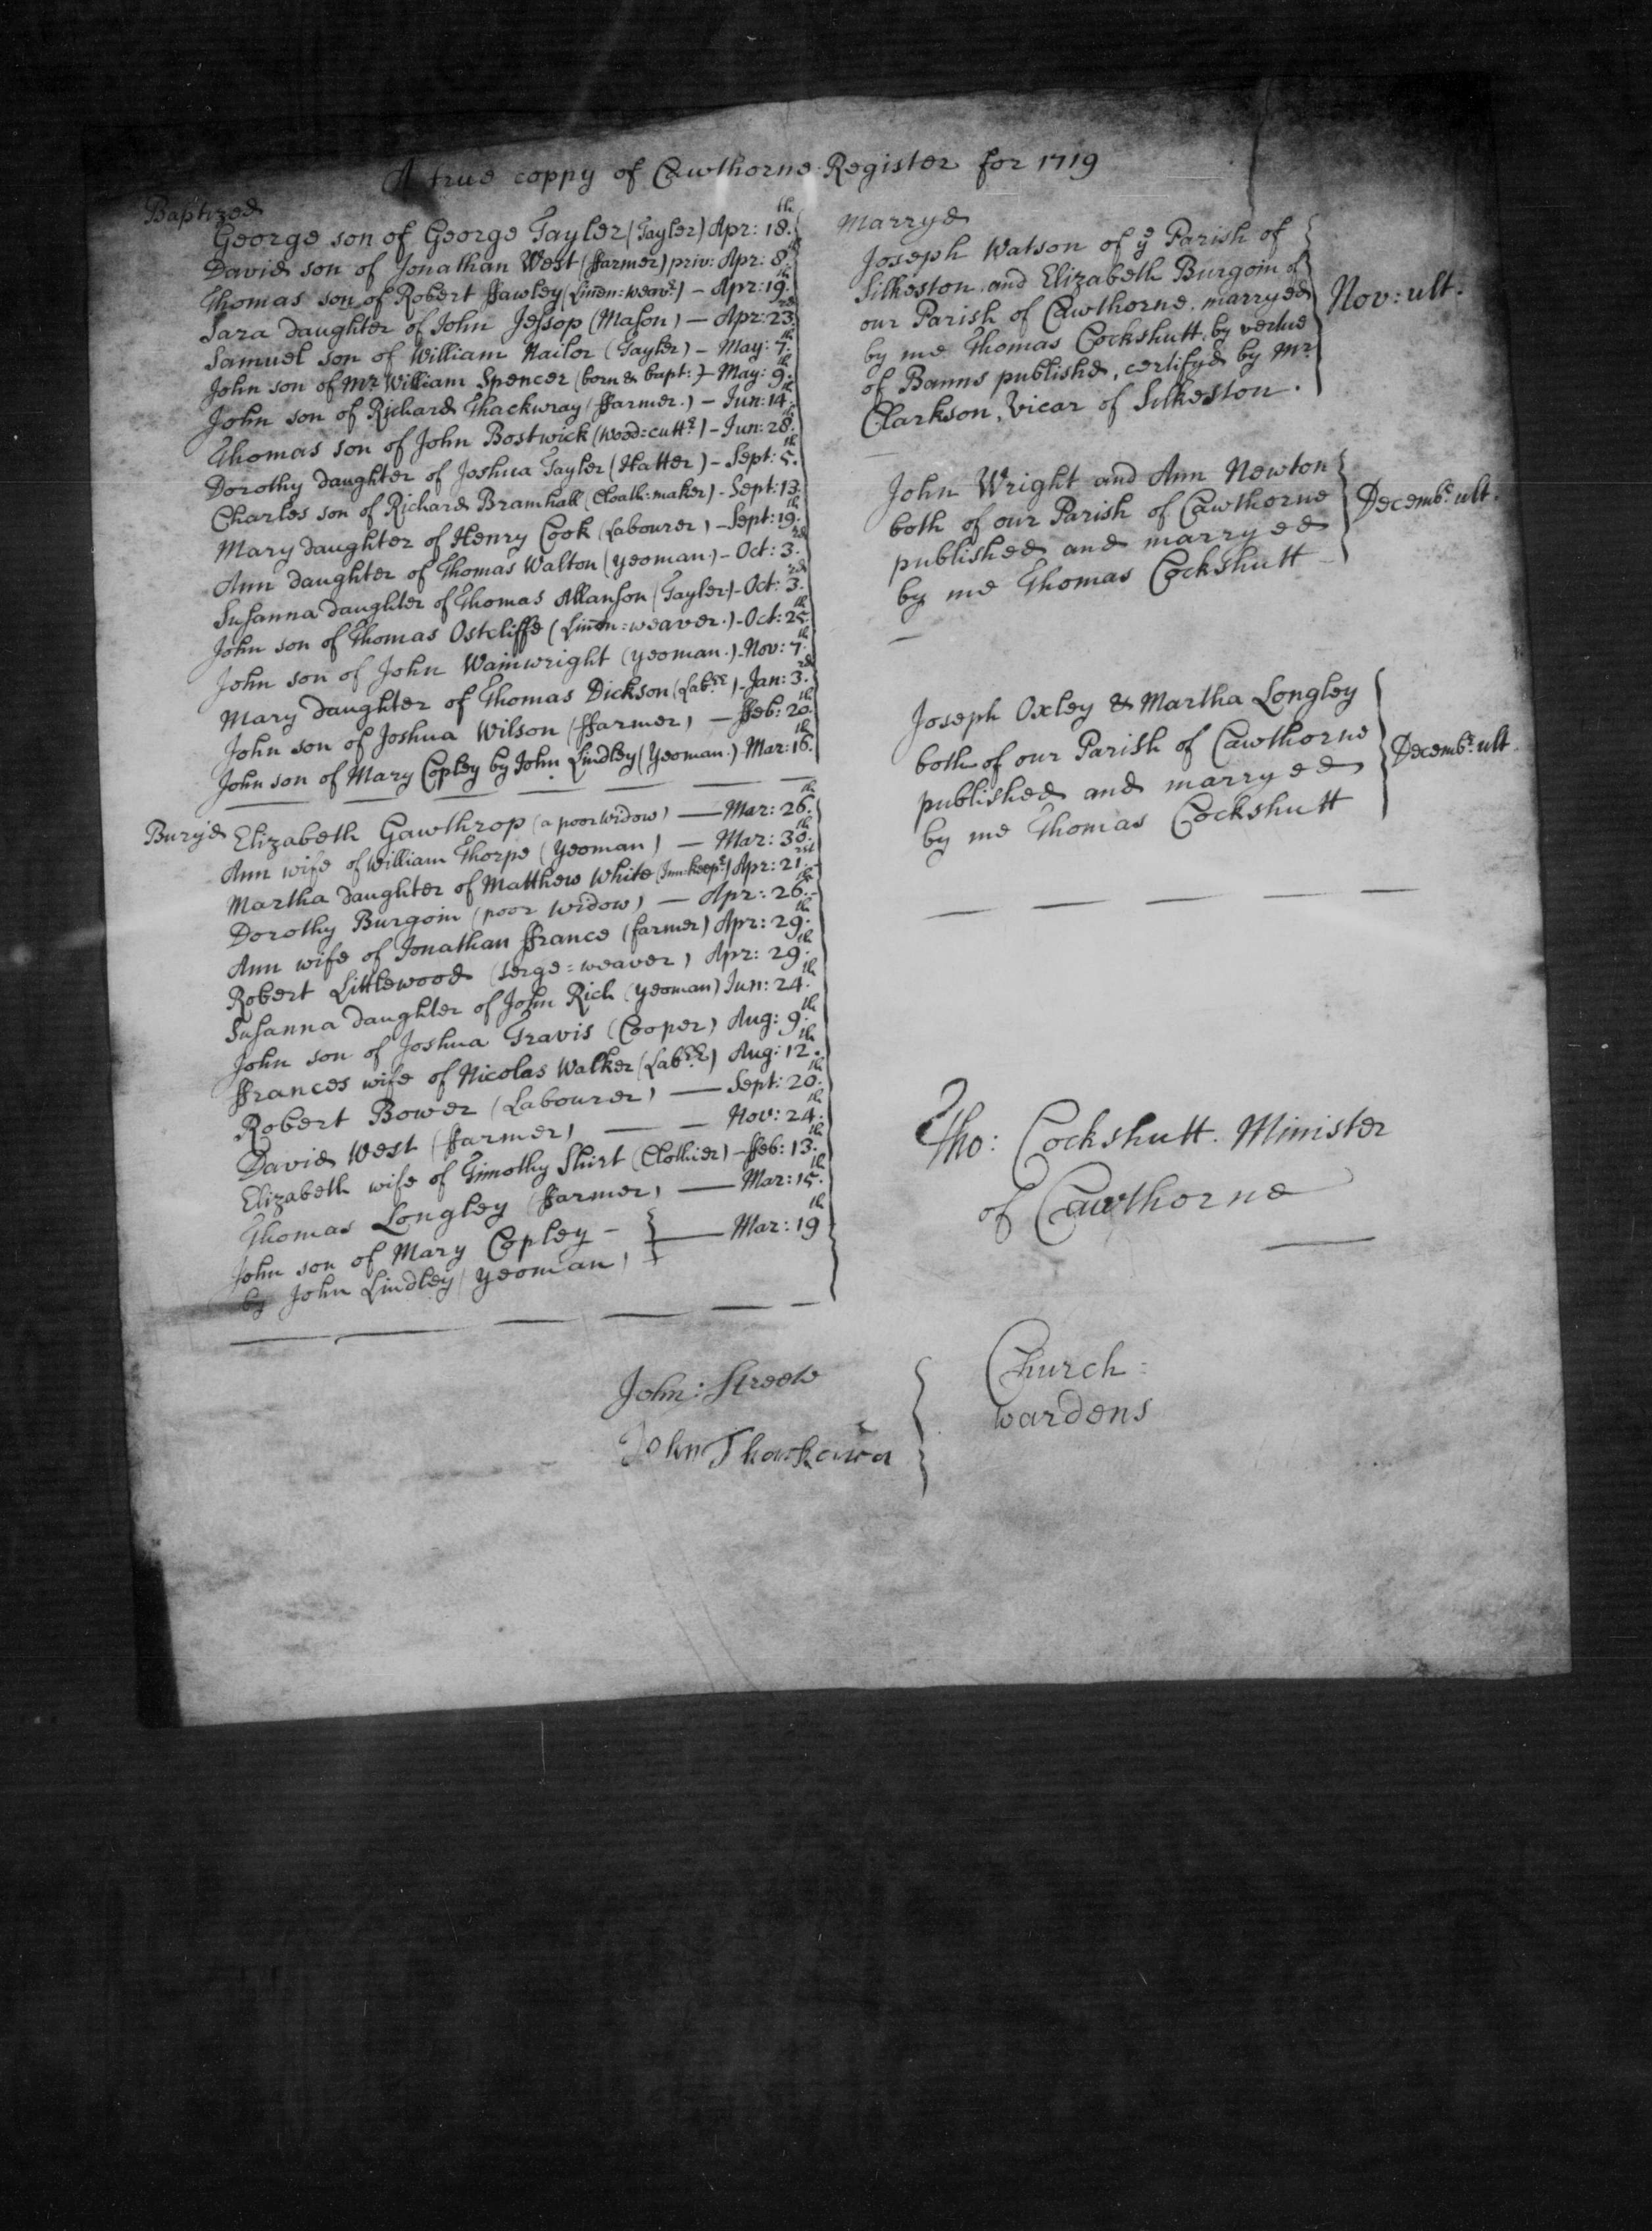 A true coppy of Cawthorne Register for 1719
Baptized
George son of George Tayler (Tayler) Apr: 18.th
David son of Jonathan West (ffarmer) priv: Apr: 8.th
Thomas son of Robert ffawley (Linen=weavr.) – Apr: 19.th
Sara daughter of John Jessop (Mason) — Apr: 23.rd
Samuel son of William Nailor (Tayler) – May: 7.th
John son of Mr William Spencer (born & bapt:) – May: 9.th
John son of Richard Thackwray (ffarmer.) – Jun: 14.th
Thomas son of John Bostwick (Wood=cuttr.) – Jun: 28.th
Dorothy daughter of Joshua Tayler (Hatter) – Sept: 5.th
Charles son of Richard Bramhall (Cloath=maker) – Sept: 13.
Mary daughter of Henry Cook (Labourer) – Sept: 19.th
Ann daughter of Thomas Walton (yeoman.) – Oct: 3.rd
Susanna daughter of Thomas Allanson (Tayler) – Oct: 3.rd
John son of Thomas Ostcliffe (Linen=weaver.) – Oct: 25.th
John son of John Wainwright (yeoman.) – Nov: 7.th
Mary daughter of Thomas Dickson (Labrr.) – Jan: 3.rd
John son of Joshua Wilson (ffarmer) — ffeb: 20.th
John son of Mary Copley by John Lindley (Yeoman.) – Mar: 16.th
Bury'd Elizabeth Gawthrop (a poor widow) — Mar: 26.th
Ann wife of William Thorpe (Yeoman) — Mar: 30.th
Martha daughter of Matthew White (Inn=keepr.) Apr: 21.st
Dorothy Burgoin (poor widow) — Apr: 26.th
Ann wife of Jonathan ffrance (farmer) Apr: 29.th
Robert Littlewood (serge=weaver) Apr: 29.th
Susanna daughter of John Rich (yeoman) Jun: 24.th
John son of Joshua Travis (Cooper) Aug: 9.th
ffrances wife of Nicolas Walker (Labrr.) Aug: 12.th
Robert Bower (Labourer) — Sept: 20.th
David West (ffarmer) — — Nov: 24.th
Elizabeth wife of Timothy Shirt (Clothier) – ffeb: 13.th
Thomas Longley (ffarmer) — Mar: 15.th
John son of Mary Copley – — Mar: 19th
by John Lindley (yeoman)
Marryd
Joseph Watson of ye Parish of
Silkeston and Elizabeth Burgoin of
our Parish of Cawthorne, marryed
by me Thomas Cockshutt, by vertue
of Banns published, certifyd by Mr.
Clarkson, Vicar of Silkeston.
Nov: ult.
John Wright and Ann Newton
both of our Parish of Cawthorne
published and marryed
by me Thomas Cockshutt
Decembr. ult.
Joseph Oxley & Martha Longley
both of our Parish of Cawthorne
published and marryed
by me Thomas Cockshutt
Decembr. ult.
Tho: Cockshutt. Minister
of Cawthorne
John: Streete
John
Church=
wardens